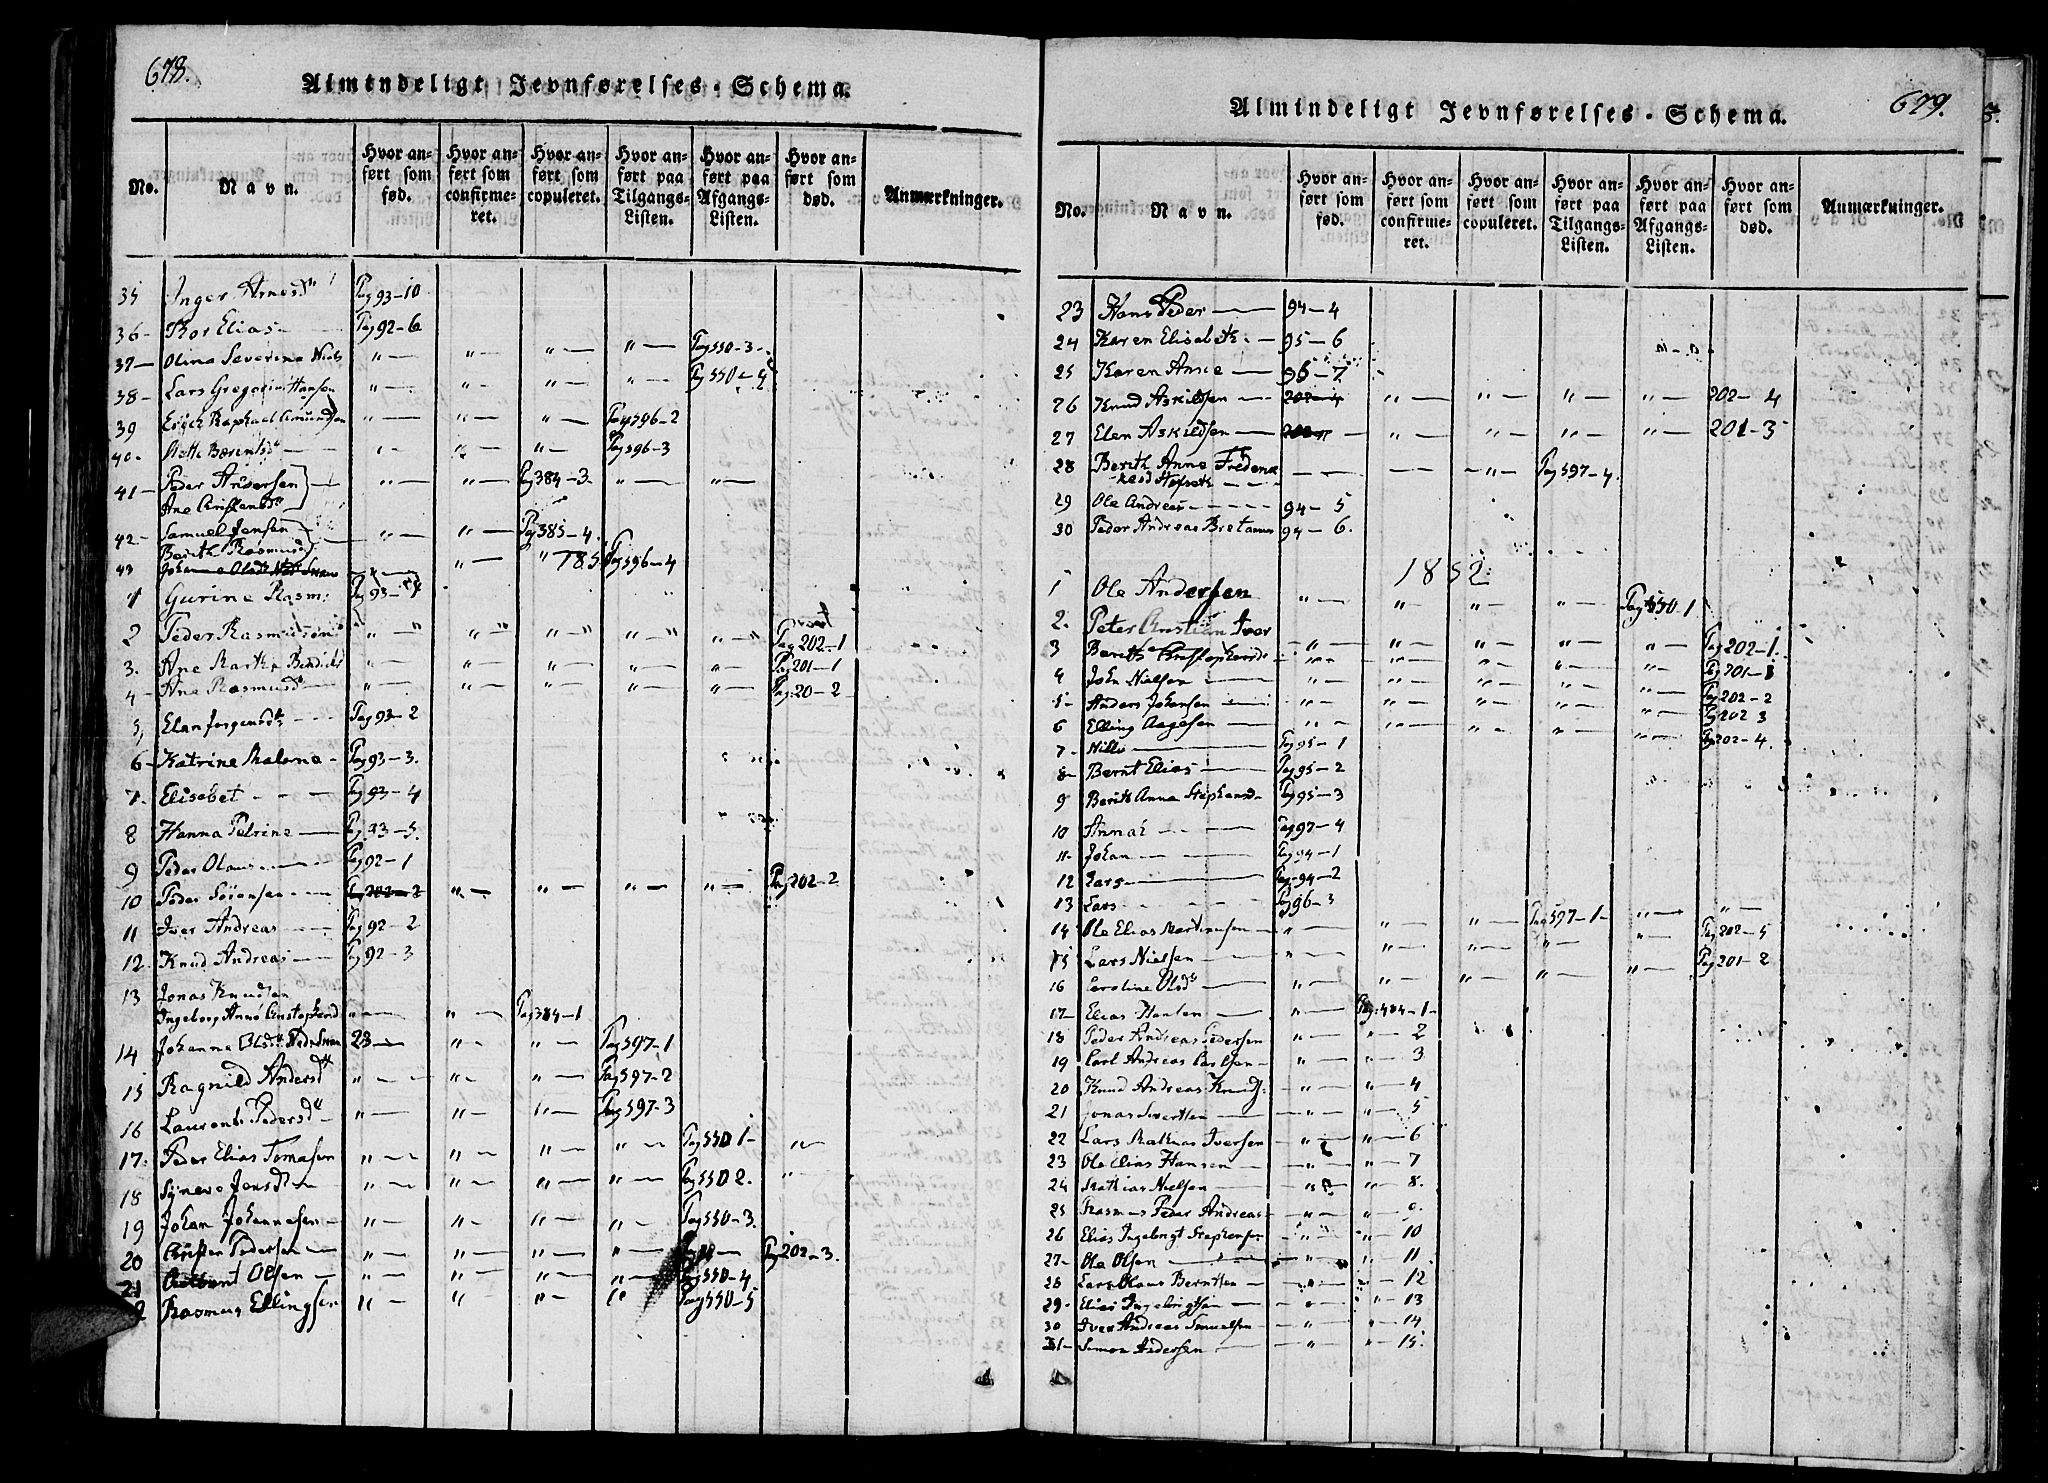 678.
Almindeligt Jevnførelses-Schema.
No. Navn. Hvor anført som fød. Hvor anført som confirmeret. Hvor anført som copuleret. Hvor anført paa Tilgangs-Listen. Hvor anført paa Afgangs-Listen. Hvor anført som død. Anmærkninger.
35 Inger Arnesd Pag 93-10
36- Thor Elias Pag 92-6
37- Olina Severina Niels „- „- „- „- Pag 550-3-
38- Lars Gregorius Hansen „- „- „- „- Pag 550-4
39 Raphael Amundsen „- „- „- Pag 596-2
40- Mette Bærentsd „- „- „- Pag 596-3
41- Peder Andersen „- „- Pag 384-3. „- „-
Ane Christensd
42- Samuel Jensen „- „- Pag 385-4.
Berith Rasmusd
43 „- „- „ 185 Pag 596-4
1 Gurine Rasm: Pag 93-
2 Peder Rasmuson „-„ „-„ „-„ „-„ „-„ Pag 202-1
3. Ane Martha Bendiks „- „- „- „- „- Pag 201-1
4- Ane Rasmusd „- „- „- „- „- Pag 20-2
5, Elen Jørgensd Pag 93-2
6- Katrine Malena- Pag 93-3.
7- Elisabet - - - Pag 93-4
8 Hanna Petrine - Pag 93-5.
9 Peder Olaus Pag 92-1
10 Peder Sørensen Pag 202-2 „- „- „- „- Pag 202-2
11 Iver Andreas Pag 92-2
12- Knud Andreas Pag 92-3
13 Jonas Knudsen
Ingeborg Anne Christophersd „- „- Pag 384-1
14 Johanna Olsd 23- „- „- Pag 597-1
15 Ragnild Andersd „- „- „- Pag 597-2
16 Laurents Pedersd „- „- „- Pag 597-3
17- Peder Elias Tomasen „- „- „- „- Pag 550 1- „-
18 Synneve Jensd „- „- „- „- Pag 550 2. „-
19 Johan Johannesen „- „- „- „- Pag 550-3.
20 Christen Pedersen „- „- „- „- Pag 202-3.
21 Olsen „- „- „- „- Pag 550-4
Rasmus Ellingsen „- „- „- „ Pag 550-5
679.
Almindeligt Jevnførelses-Schema.
No. Navn. Hvor anført som fød. Hvor anført som confirmeret. Hvor anført som copuleret. Hvor anført paa Tilgangs-Listen. Hvor anført paa Afgangs-Listen. Hvor anført som død. Anmærkninger.
23 Hans Peder - 94-4
24 Karen Elisabeth - 95-6
25 Karen Anne - 95-7
26 Knud Askildsen - 202-4 „- „- „- „- 202-4
27 Elen Askildsen - „- „- „- „- 201-3
28 Berith Anne Frederikesd - - „- Pag 597-4.
29 Ole Andreas - - - 94-5
30 Peder Andreas 94-6.
1852
1 Ole Andersen „- „- „- „- Pag 550-1
2. Peter Christian Iver
3 Berith Christophersd „- „- „- „- „- Pag 202-1.
4 John Nielsen „- „- „- „- „- Pag 201-1
5- Anders Johansen „- „- „- „- „- Pag 202-2
6 Elling Aagesen „- „- „- „- „- Pag 202 3
7- Nille Pag 95-1 Pag 202-4.
8- Bernt Elias Pag 95-2
9 Berith Anna Stephensd- Pag 95-3
10 Anna Pag 97-4
11- Johan Pag 94-1
12 Lars Pag 94-2
13 Lars Pag 96-3
14 Ole Elias Martinusen „- „- „- Pag 597-1- „- „-
15 Lars Nielsen „- „- „- „- „- Pag 202-5
16 Caroline Olsd „- „- „- „- „- Pag 201-2
17- Elias Hansen „- Pag 484-1-
18 Peder Andreas Pedersen „- „- 2
19 Carl Andreas Carlsen „- „- 3
20 Knud Andreas Knuds: „- „- 4
21 Jonas Sivertsen „- „- 5
22 Lars Mathias Iversen „- „- 6
23 Ole Elias Hansen „- „- 7
24 Mathias Nielsen „- „- 8.
25 Rasmus Peder Andreas- „- „- 9.
26 Elias Ingebrigt Stephensen „- „- 10
27- Ole Olsen „- „- 11.
28 Lars Olaus Berntsen „- „- 12
29- Elias Ingebrigtsen „- „- 13
30 Iver Andreas Samuelsen „- „- 14
31- Simon Andersen „- „- 15.